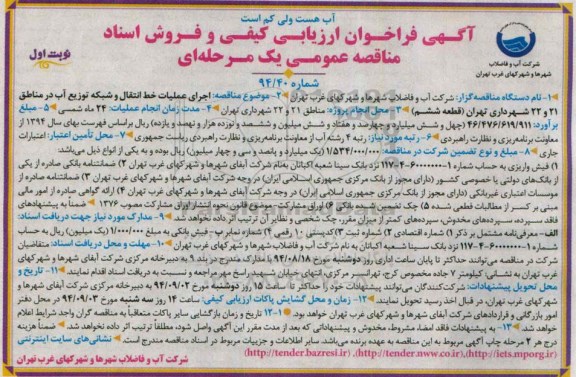 آب هست ولی کم است
آگهی فراخوان ارزیابی کیفی و فروش اسناد
مناقصه عمومی یک مرحله‌ای
شماره ۹۴/۴۰
نوبت اول
شرکت آب و فاضلاب
شهرها و شهرکهای غرب تهران
۱- نام دستگاه مناقصه‌گزار: شرکت آب و فاضلاب شهرها و شهرکهای غرب تهران ۲- موضوع مناقصه: اجرای عملیات خط انتقال و شبکه توزیع آب در مناطق
۲۱ و ۲۲ شهرداری تهران (قطعه ششم) ۳- محل انجام پروژه: مناطق ۲۱ و ۲۲ شهرداری تهران ۴- مدت زمان انجام عملیات: ۲۴ ماه شمسی ۵- مبلغ
برآورد: ۴۶/۴۷۶/۶۱۹/۹۱۱ (چهل و شش میلیارد و چهارصد و هفتاد و شش میلیون و ششصد و نوزده هزار و نهصد و یازده) ریال براساس فهرست بهای سال ۱۳۹۴ از
معاونت برنامه‌ریزی و نظارت راهبردی ۶- رتبه مورد نیاز: رتبه ۴ رشته آب از معاونت برنامه‌ریزی و نظارت راهبردی ریاست جمهوری ۷- محل تأمین اعتبار: اعتبارات
جاری ۸- مبلغ و نوع تضمین شرکت در مناقصه: ۱/۵۳۴/۰۰۰/۰۰۰ (یک میلیارد و پانصد و سی و چهار میلیون) ریال بوده و به یکی از انواع ذیل می‌باشد:
۱) فیش واریزی به حساب شماره ۱-۶۰۰۰۰۰۰-۴-۱۱۷ نزد بانک سینا شعبه اکباتان به‌نام شرکت آبفای شهرها و شهرکهای غرب تهران ۲) ضمانتنامه بانکی صادره از یکی
از بانک‌های دولتی یا خصوصی کشور (دارای مجوز از بانک مرکزی جمهوری اسلامی ایران) در وجه شرکت آبفای شهرها و شهرکهای غرب تهران ۳) ضمانتنامه صادره از
موسسات اعتباری غیربانکی (دارای مجوز از بانک مرکزی جمهوری اسلامی ایران) در وجه شرکت آبفای شهرها و شهرکهای غرب تهران ۴) ارائه گواهی صادره از امور مالی
مبنی بر کسر از مطالبات قطعی شده ۵) چک تضمین شده بانکی ۶) اوراق مشارکت- موضوع قانون نحوه انتشار اوراق مشارکت مصوب ۱۳۷۶ - ضمناً به پیشنهادهای
فاقد سپرده، سپرده‌های مخدوش، سپرده‌های کمتر از میزان مقرر، چک شخصی و نظایر آن ترتیب اثر داده نخواهد شد ۹- مدارک مورد نیاز جهت دریافت اسناد:
الف- معرفی‌نامه مشتمل بر ذکر ۱) شماره اقتصادی ۲) شماره ثبت ۳) کدپستی ۱۰ رقمی ۴) شماره نمابر ب- فیش بانکی به مبلغ ۱/۰۰۰/۰۰۰ (یک میلیون) ریال به حساب
شماره ۱-۶۰۰۰۰۰۰-۴-۱۱۷ نزد بانک سینا شعبه اکباتان به نام شرکت آب و فاضلاب شهرها و شهرکهای غرب تهران ۱۰- مهلت و محل دریافت اسناد: متقاضیان
شرکت در مناقصه می‌توانند حداکثر تا پایان ساعت اداری روز دوشنبه مورخ ۹۴/۰۸/۱۸ با مدارک مندرج در بند ۹ به دبیرخانه مرکزی شرکت آبفای شهرها و شهرکهای
غرب تهران به نشانی کیلومتر ۷ جاده مخصوص کرج، تهرانسر مرکزی، انتهای خیابان شهید راسخ مهر مراجعه و نسبت به دریافت اسناد اقدام نمایند. ۱۱- تاریخ و
محل تحویل پیشنهادات: شرکت‌کنندگان می‌توانند پیشنهادات خود را حداکثر تا ساعت ۱۵ روز دوشنبه مورخ ۹۴/۰۹/۰۲ به دبیرخانه مرکزی شرکت آبفای شهرها و
شهرکهای غرب تهران، در قبال اخذ رسید تحویل نمایند. ۱۲- زمان و محل گشایش پاکات ارزیابی کیفی: ساعت ۱۴ روز سه شنبه مورخ ۹۴/۰۹/۰۳ در محل دفتر
امور بازرگانی و قراردادهای شرکت آبفای شهرها و شهرکهای غرب تهران خواهد بود. ۱-۱۲ تاریخ و زمان بازگشایی سایر پاکات متعاقباً به مناقصه گران واجد شرایط اعلام
خواهد شد. ۱۳- به پیشنهادات فاقد امضا، مشروط، مخدوش و پیشنهاداتی که بعد از مدت مقرر این آگهی واصل شود، مطلقاً ترتیب اثر داده نخواهد شد. ضمناً هزینه
درج هر ۲ مرحله چاپ آگهی مربوط به این مناقصه به عهده برنده می‌باشد. سایر اطلاعات و جزییات مربوط در اسناد مناقصه مندرج است. نشانی‌های سایت اینترنتی
(http://iets.mporg.ir)، (http://tender.nww.co.ir)، (http://tender.bazresi.ir)
شرکت آب و فاضلاب شهرها و شهرکهای غرب تهران